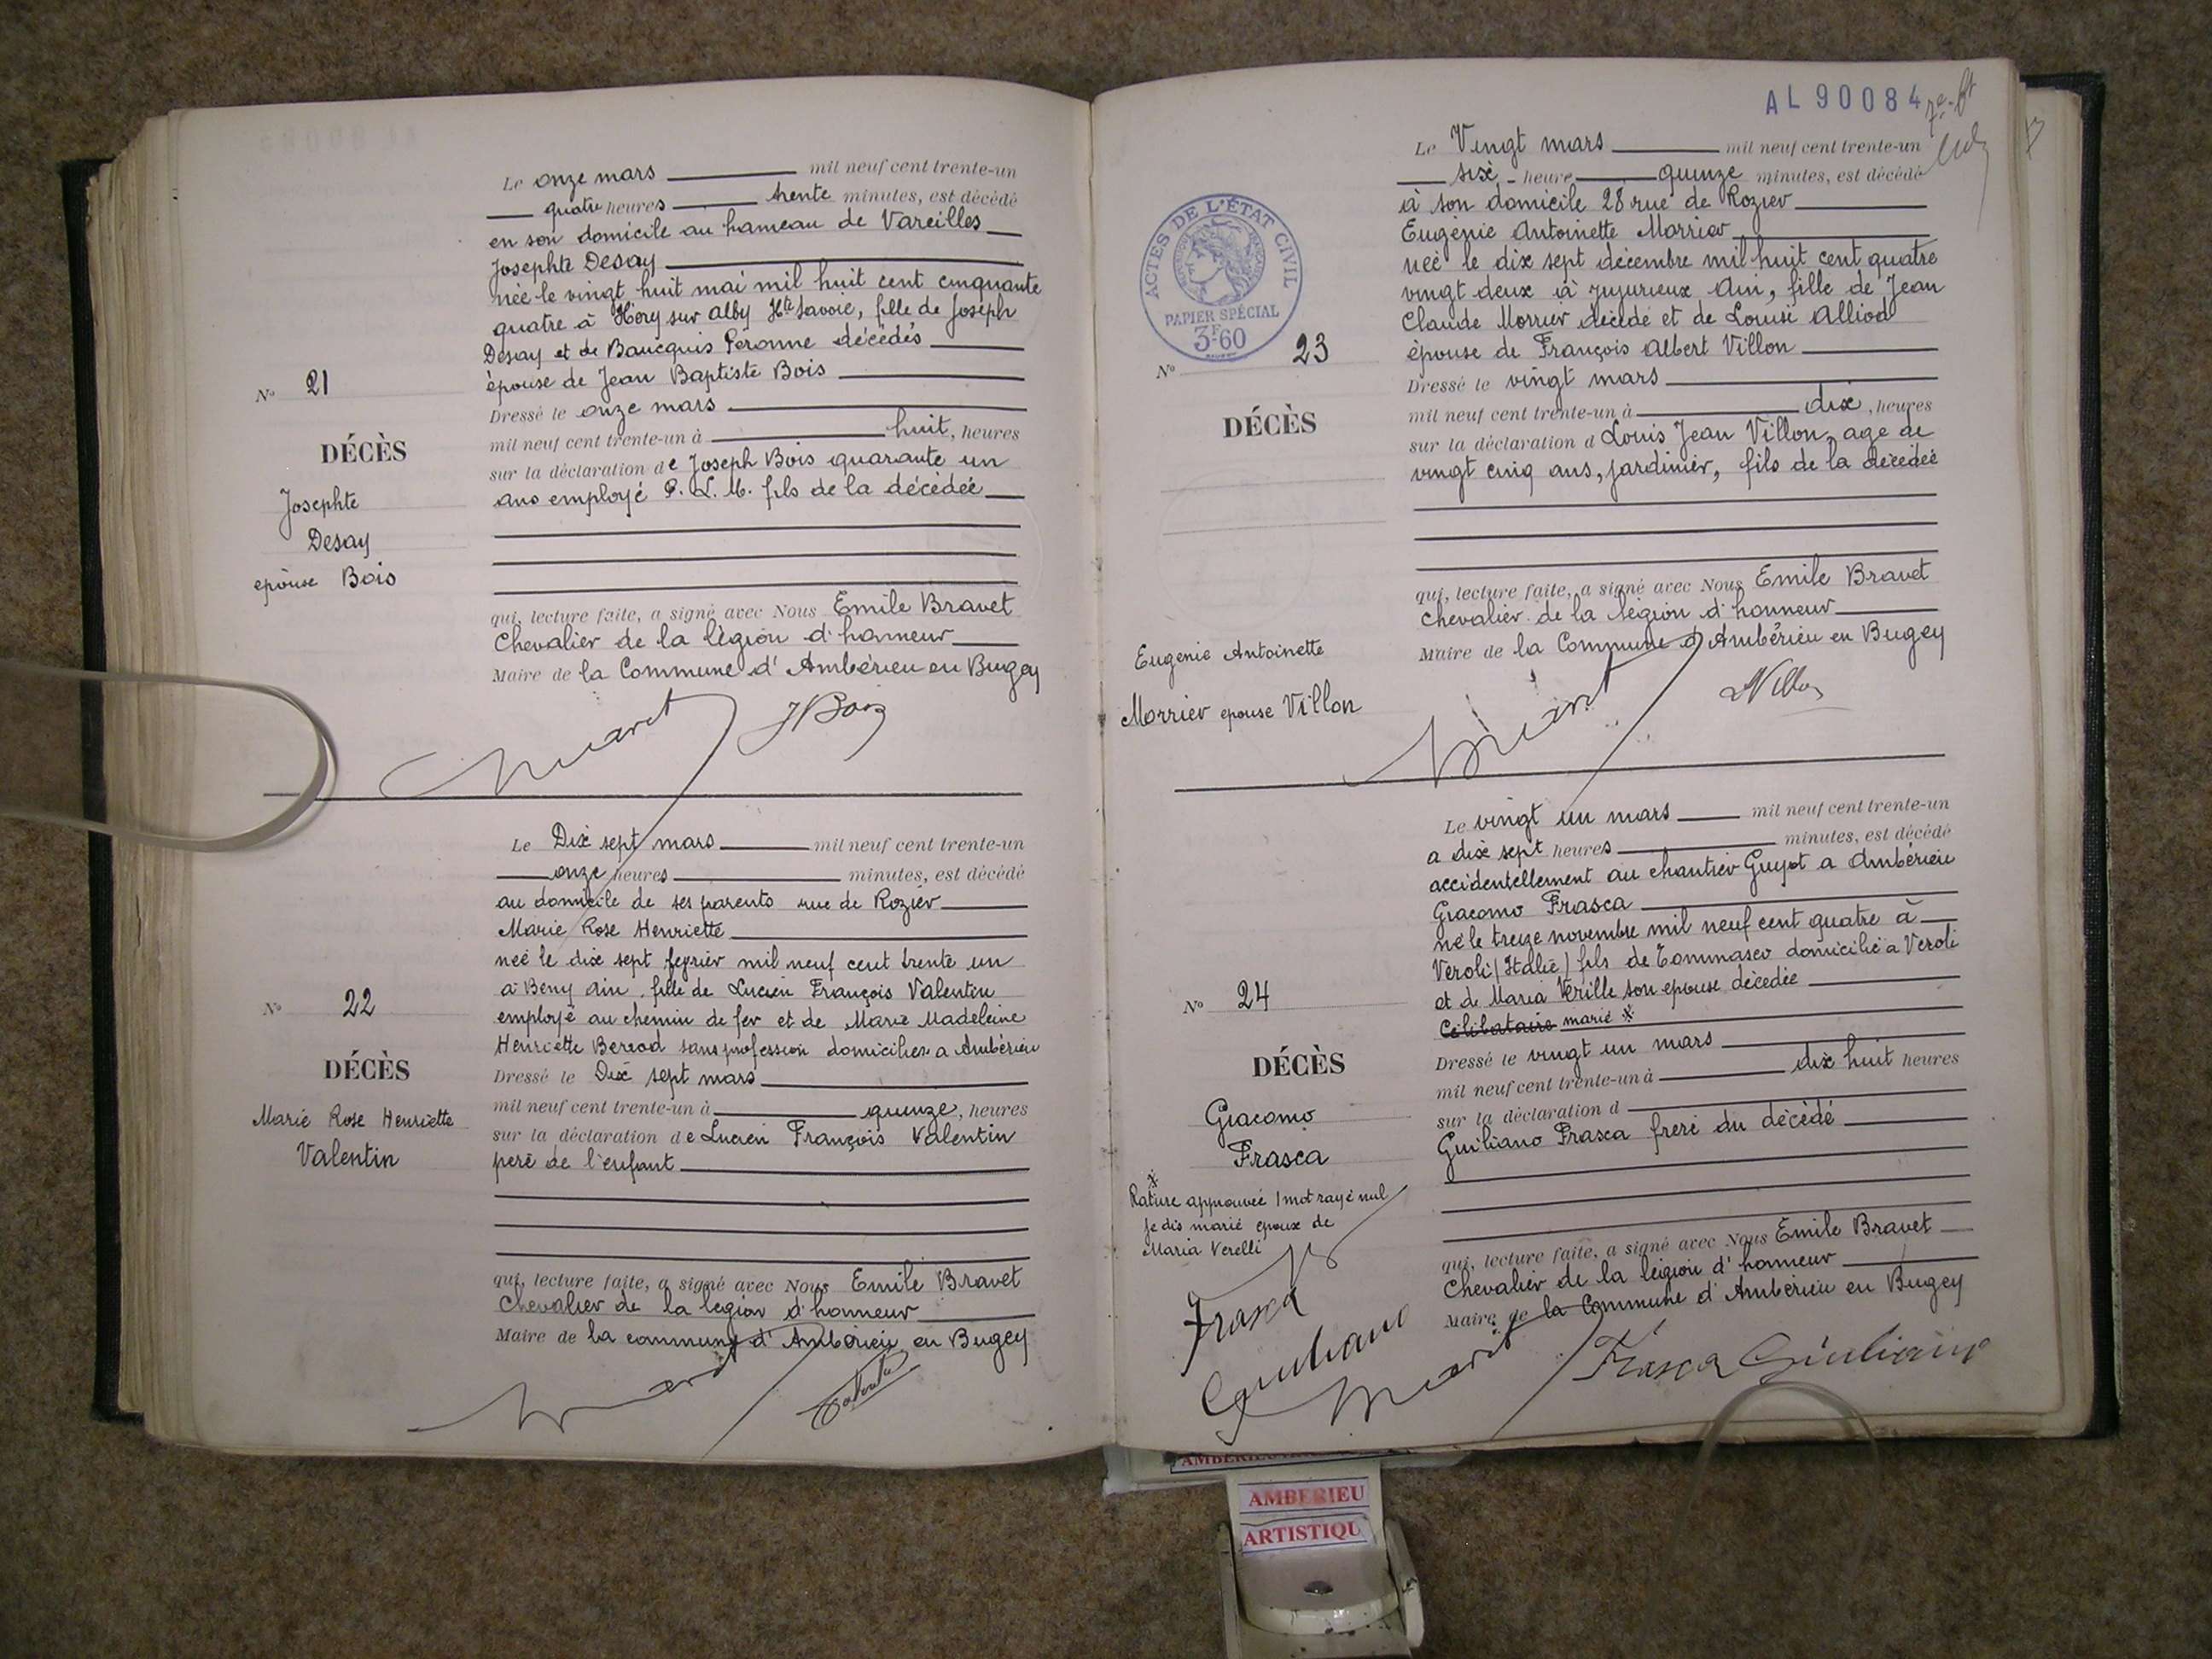 Le onze mars mil neuf cent trente-un
quatre heures trente minutes, est décédé
en son domicile au hameau de Vareilles
Josephte Desay
née le vingt huit mai mil huit cent cinquante
quatre à Héry sur Alby Hte Savoie, fille de Joseph
Desay et de Baucquis Peronne décédés
épouse de Jean Baptiste Bois
Dressé le onze mars
mil neuf cent trente-un à huit, heures
sur la déclaration de Joseph Bois quarante un
ans employé P. L. M. fils de la décédée
qui, lecture faite, a signé avec Nous Emile Bravet
Chevalier de la légion d'honneur
Maire de la Commune d'Ambérieu en Bugey
N° 21
DÉCÈS
Josephte
Desay
epouse Bois
JBois
Le Dix sept mars mil neuf cent trente-un
onze heures minutes, est décédé
au domicile de ses parents rue de Rozier
Marie Rose Henriette
née le dix sept fevrier mil neuf cent trente un
a Beny Ain, fille de Lucien François Valentin
employé au chemin de fer et de Marie Madeleine
Henriette Berrod sans profession domiciliés a Ambérieu
Dressé le Dix sept mars
mil neuf cent trente-un à quinze, heures
sur la déclaration de Lucien François Valentin
pere de l'enfant
qui, lecture faite, a signé avec Nous Emile Bravet
Chevalier de la legion d'honneur
Maire de la commune d'Ambérieu en Bugey
N° 22
DÉCÈS
Marie Rose Henriette
Valentin
Valentin
AL90084
Le Vingt mars mil neuf cent trente-un
six heure quinze minutes, est décédé
à son domicile 28 rue de Rozier
Eugénie Antoinette Morrier
née le dix sept décembre mil huit cent quatre
vingt deux à Jujurieux Ain, fille de Jean
Claude Morrier décédé et de Louise Alliod
épouse de François Albert Villon
Dressé le vingt mars
mil neuf cent trente-un à dix, heures
sur la déclaration d Louis Jean Villon, age de
vingt cinq ans, jardinier, fils de la décédée
qui, lecture faite, a signé avec Nous Emile Bravet
Chevalier de la légion d'honneur
Maire de la Commune d'Ambérieu en Bugey
ACTES DE L'ÉTAT CIVIL
PAPIER SPÉCIAL
3F60
N° 23
DÉCÈS
Eugenie Antoinette
Morrier epouse Villon
Villon
Le vingt un mars mil neuf cent trente-un
a dix sept heures minutes, est décédé
accidentellement au chantier Guyot a Ambérieu
Giacomo Frasca
né le treize novembre mil neuf cent quatre à
Veroli (Italie) fils de Tommaseo domicilié a Veroli
et de Maria Verille son epouse décédée
Célibataire marié x
Dressé le vingt un mars
mil neuf cent trente-un à dix huit heures
sur la déclaration d
Guiliano Frasca frere du décédé
qui, lecture faite, a signé avec Nous Emile Bravet
Chevalier de la légion d'honneur
Maire de la Commune d'Ambérieu en Bugey
N° 24
DÉCÈS
Giacomo
Frasca
x
Rature approuvée 1 mot rayé nul
je dis marié epoux de
Maria Verelli
Frasca
Giuliano
Frasca Giuliano
AMBERIEU
ARTISTIQU